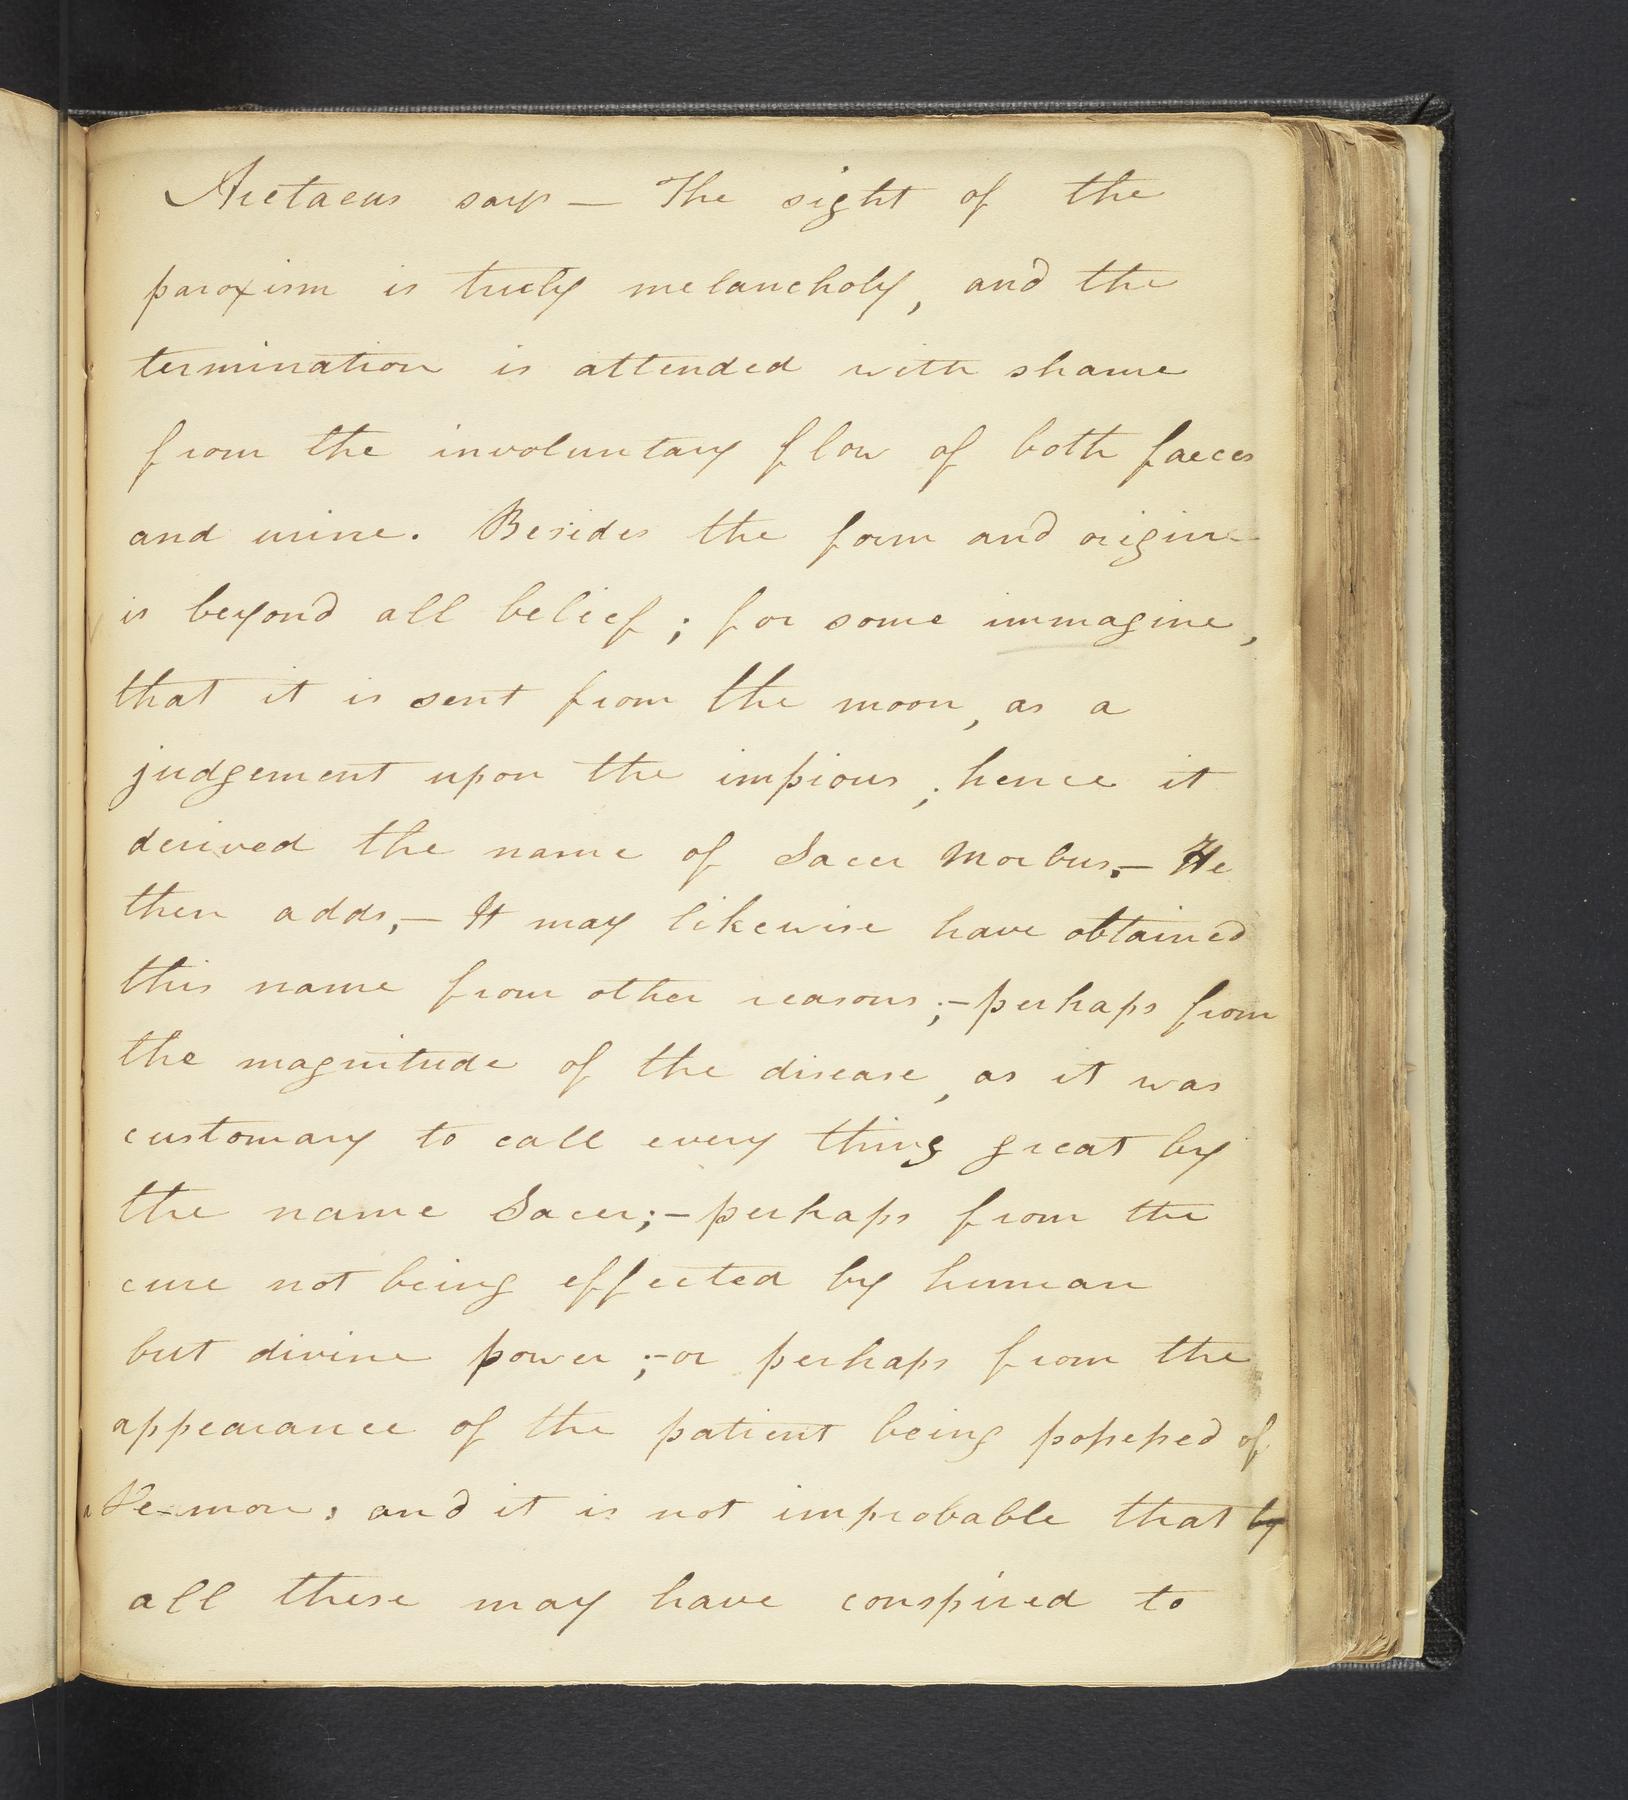 Aretaeus says — The sight of the
paroxism is truly melancholy, and the
termination is attended with shame
from the involuntary flow of both faeces
and urine. Besides the form and origin
is beyond all belief; for some immagine,
that it is sent from the moon, as a
judgement upon the impious; hence it
derived the name of Sacer Morbus,— He
then adds,— It may likewise have obtained
this name from other reasons;— perhaps from
the magnitude of the disease, as it was
customary to call every thing great by
the name Sacer;— perhaps from the
cure not being effected by human
but divine power;— or perhaps from the
appearance of the patient being possessed of
a De-mon: and it is not improbable that by
all these may have conspired to